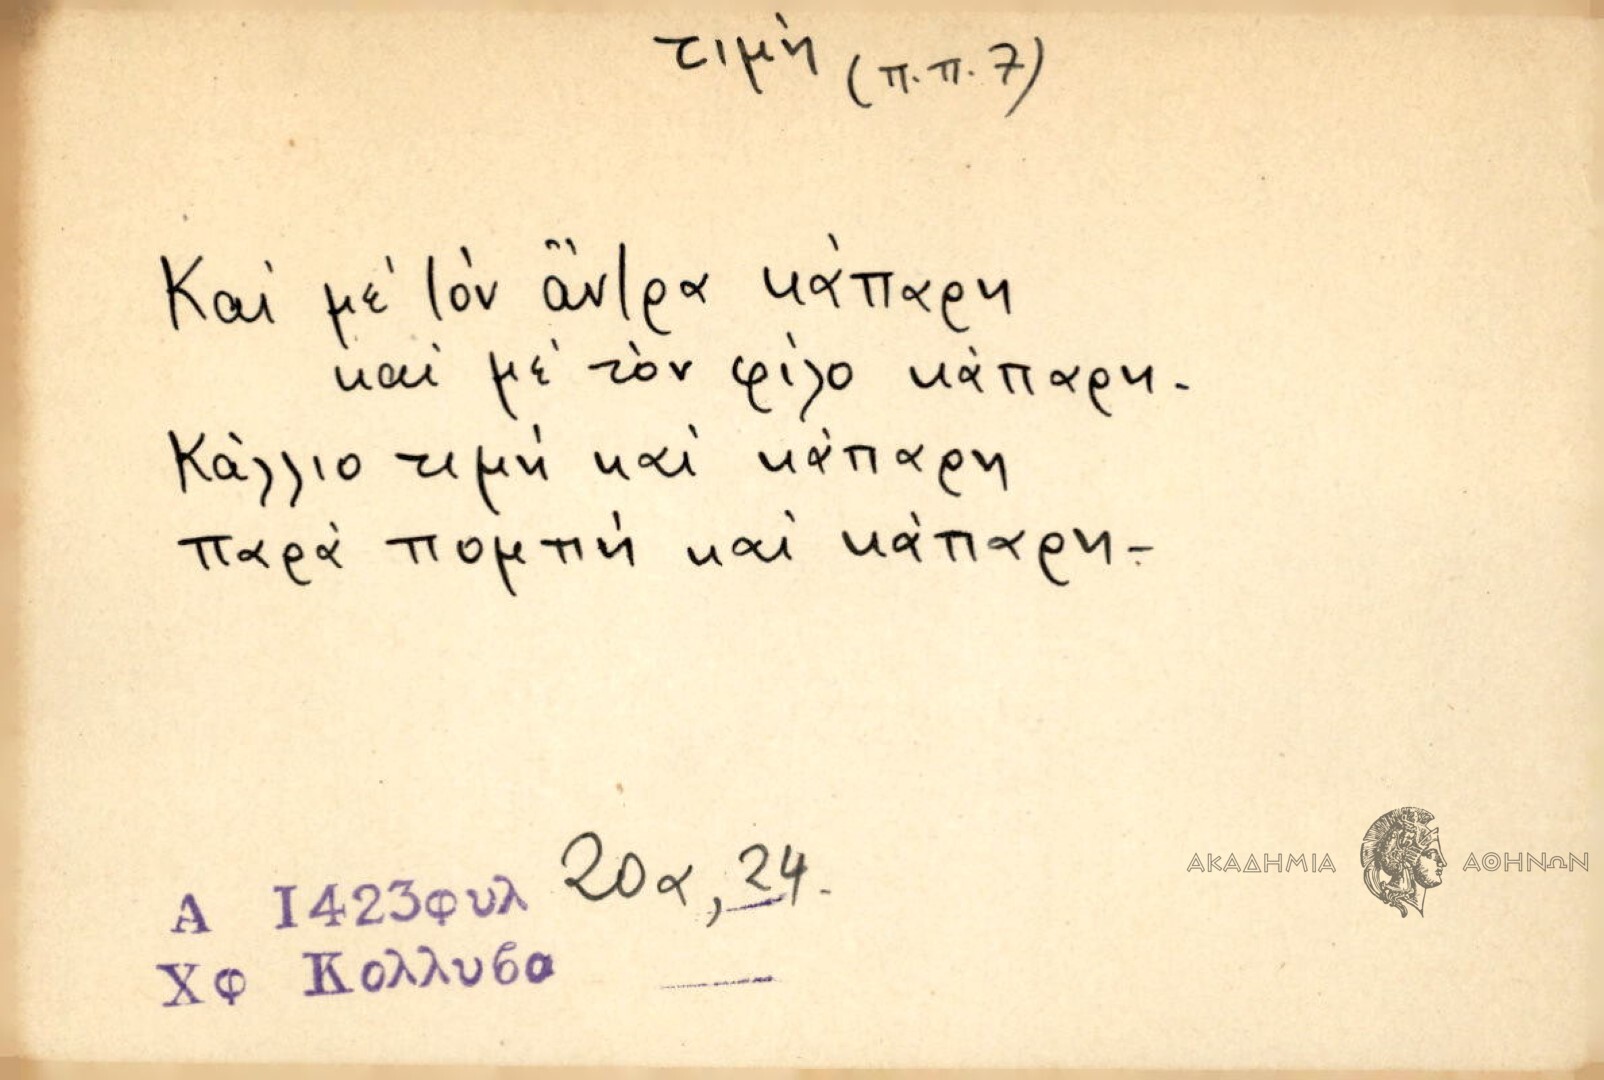 τιμή (π.π. 7)
Καί μέ τόν ἄντρα κάπαρη
καί μέ τόν φίλο κάπαρη.
Κάλλιο τιμή καί κάπαρη
παρά πομπή καί κάπαρη.
Α 1423φυλ 20α, 24.
Χφ Κολλυβα
ΑΚΑΔΗΜΙΑ ΑΘΗΝΩΝ